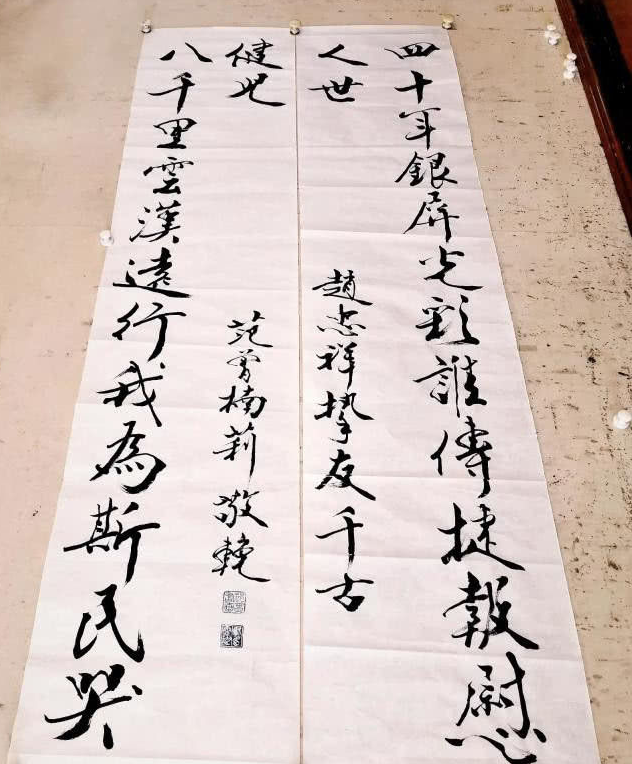 四十年銀屏光彩誰傳捷報慰
人世
趙忠祥摯友千古
八千里雲漢遠行我為斯民哭
健兒
范曾楠莉敬輓